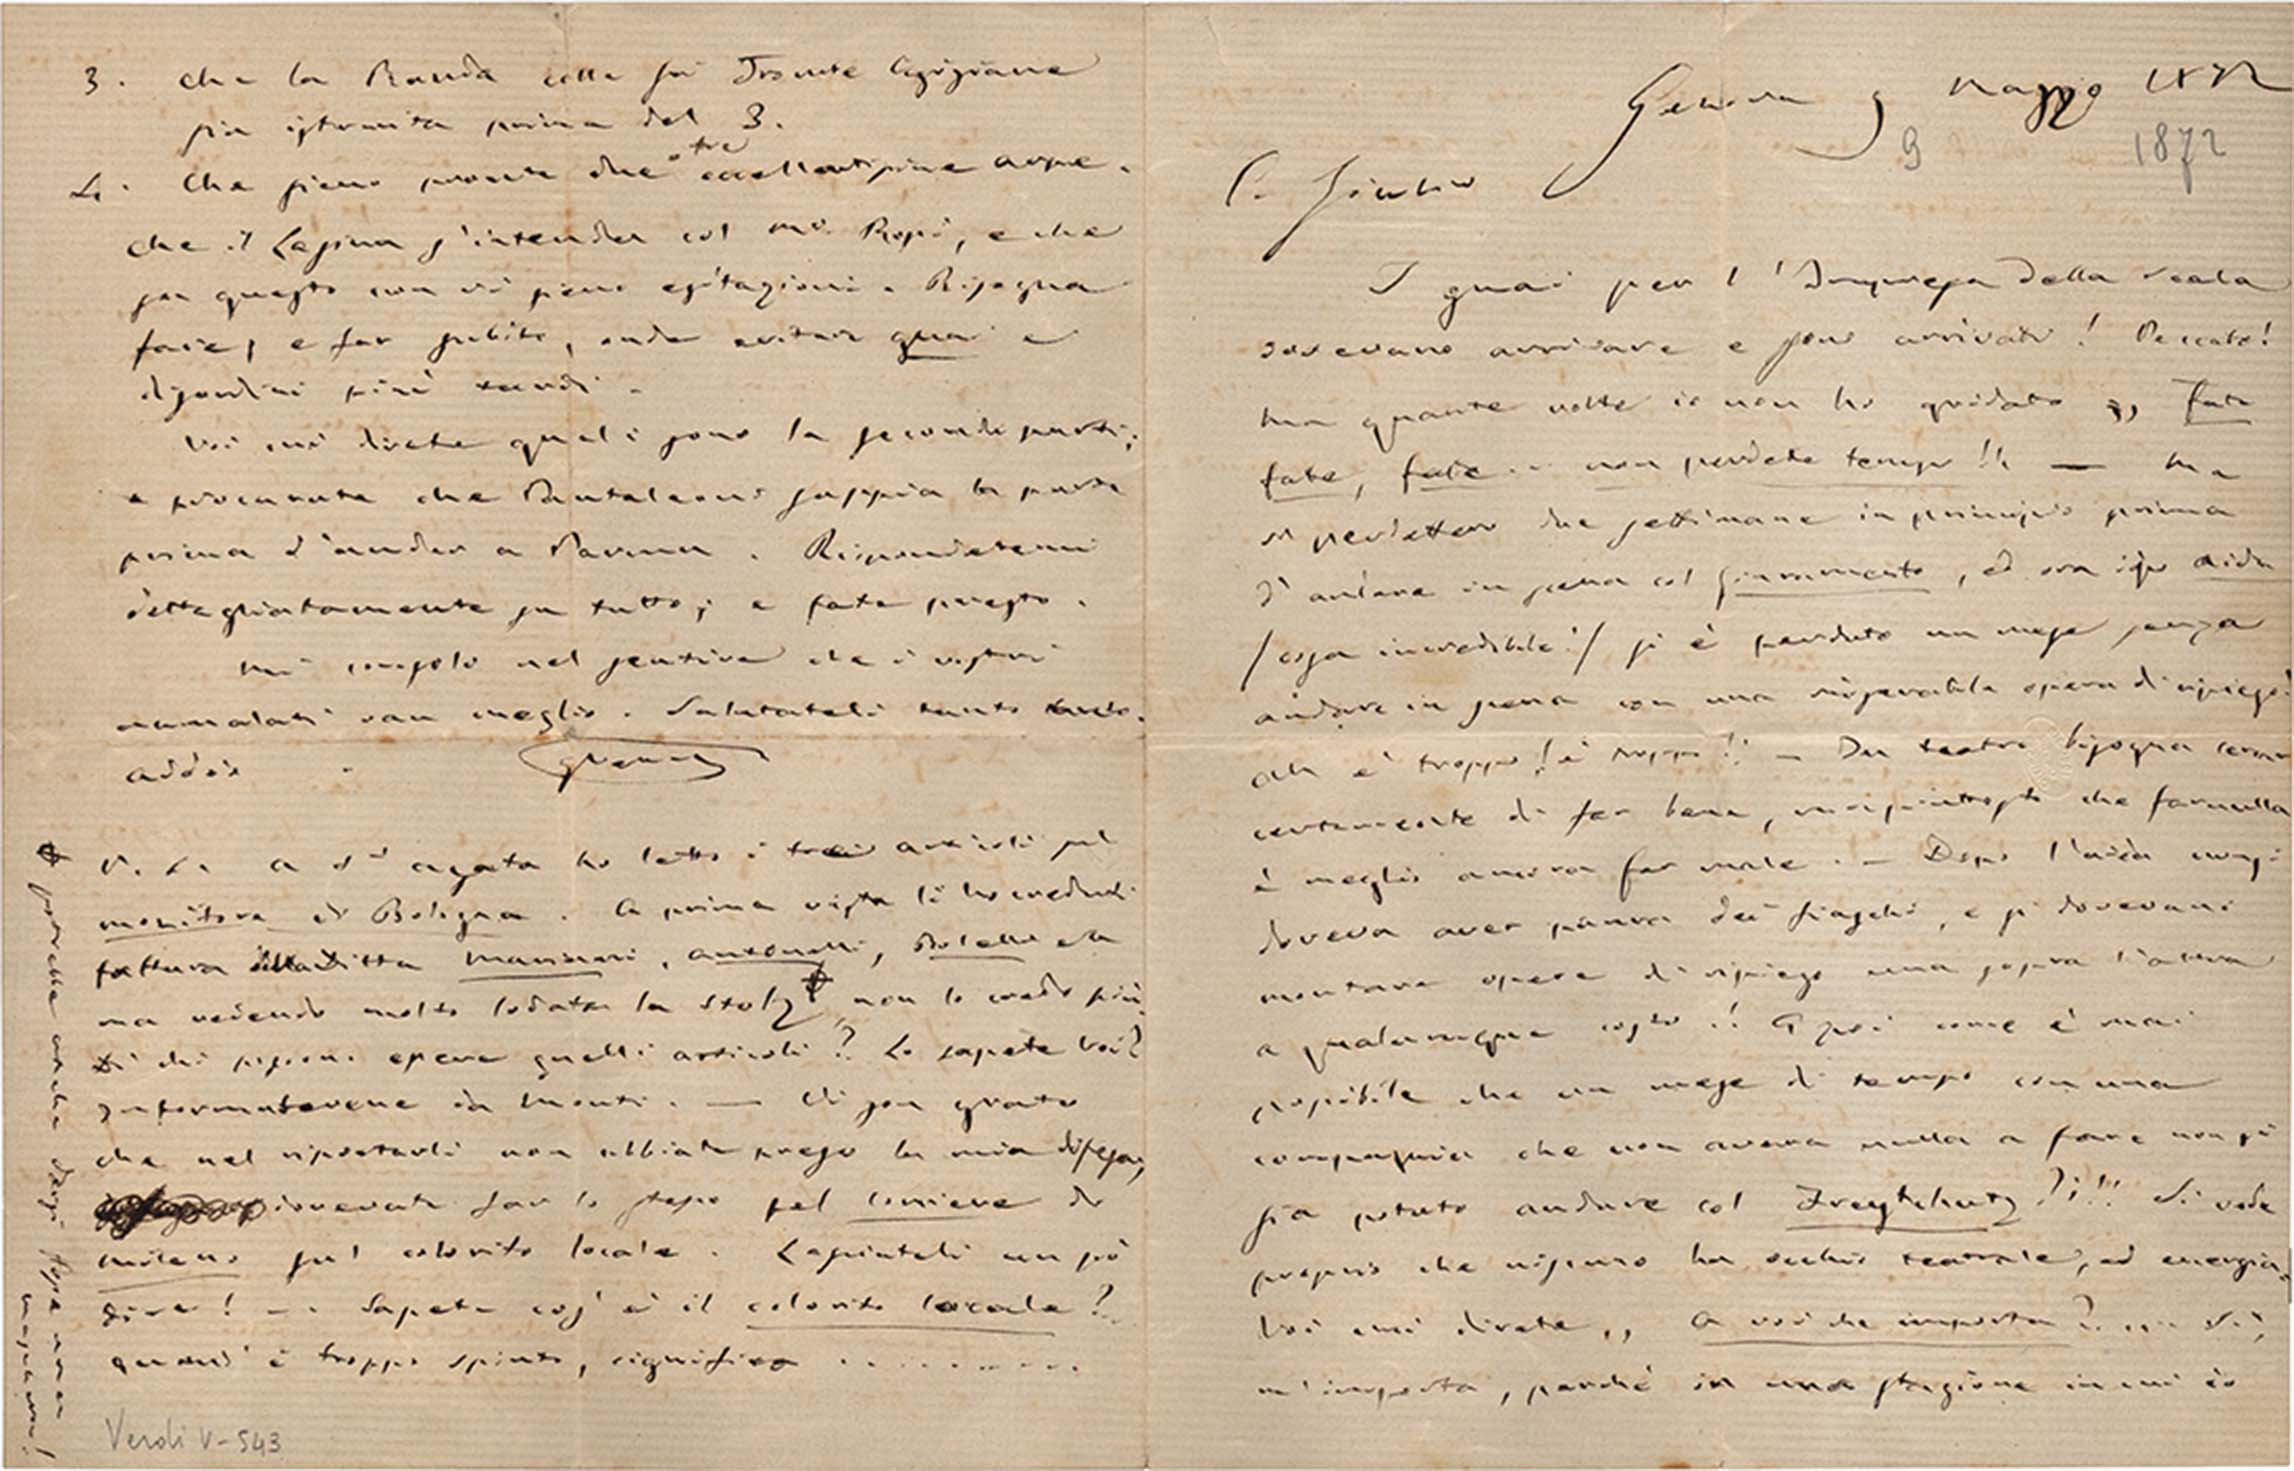 Genova 9 Maggio 1872
9 1872
C. Giulio
I guai per l'Impresa della Scala
dovevano arrivare e sono arrivati! Peccato!
Ma quante volte io non ho gridato „ Fate
fate, fate .. non perdete tempo!! — Ma
si perdettero due settimane in principio prima
d'andare in scena col Giuramento, ed ora dopo Aida
/cosa incredibile!/ si è perduto un mese senza
andare in scena con una miserabile opera di ripiego!
Ah è troppo! è troppo!! — In teatro bisogna
certamente di far bene, ma piuttosto che far nulla
è meglio ancora far male. — Dopo l'Aida non si
doveva aver paura dei fiaschi, e si dovevano
montare opere di ripiego una sopra l'altra
a qualunque costo!! E poi come è mai
possibile che un mese di tempo con una
compagnia che non aveva nulla a fare non si
sia potuto andare col Freyschutz?!!! Si vede
proprio che nissuno ha occhio teatrale, ed energia.
Voi mi direte „ A voi che importa? ... Sì,
m'importa, perchè in una stagione in cui io
3. Che la Banda colle sei Trombe Egiziane
sia istruita prima del 3.
4. Che sieno pronte due o tre eccellentissime Arpe.
Che il Lasina s'intenda col Mo. Rossi, e che
per questo non vi sieno esitazioni. Bisogna
fare, e far subito, onde evitare guai e
disordini più tardi.
Voi mi direte quali sono le seconde parti;
e procurate che Pantaleoni sappia la parte
prima d'andar a Parma. Rispondetemi
dettagliatamente su tutto; e fate presto.
Mi consolo nel sentire che i vostri
ammalati van meglio. Salutateli tanto tanto.
Addio
GVerdi
P.S. A St Agata ho letto i tre articoli sul
Monitore di Bologna. A prima vista li ho creduti
fattura della Ditta Mariani, Antonelli,
ma vedendo molto lodata la Stolz non lo credo più.
Di chi sissono essere quelli articoli? Lo sapete Voi?
Informatevene da Monti. — Vi son grato
che nel riportarli non abbiate preso la mia difesa,
dovevate far lo stesso sul Corriere di
Milano sul colorito locale. Lasciateli un pò
dire! — Sapete cos'è il colorito locale?
quand'è troppo spinto, significa . . . . . . . . .
potrebbe anche darsi fosse una
mascherata!
Verdi V-543